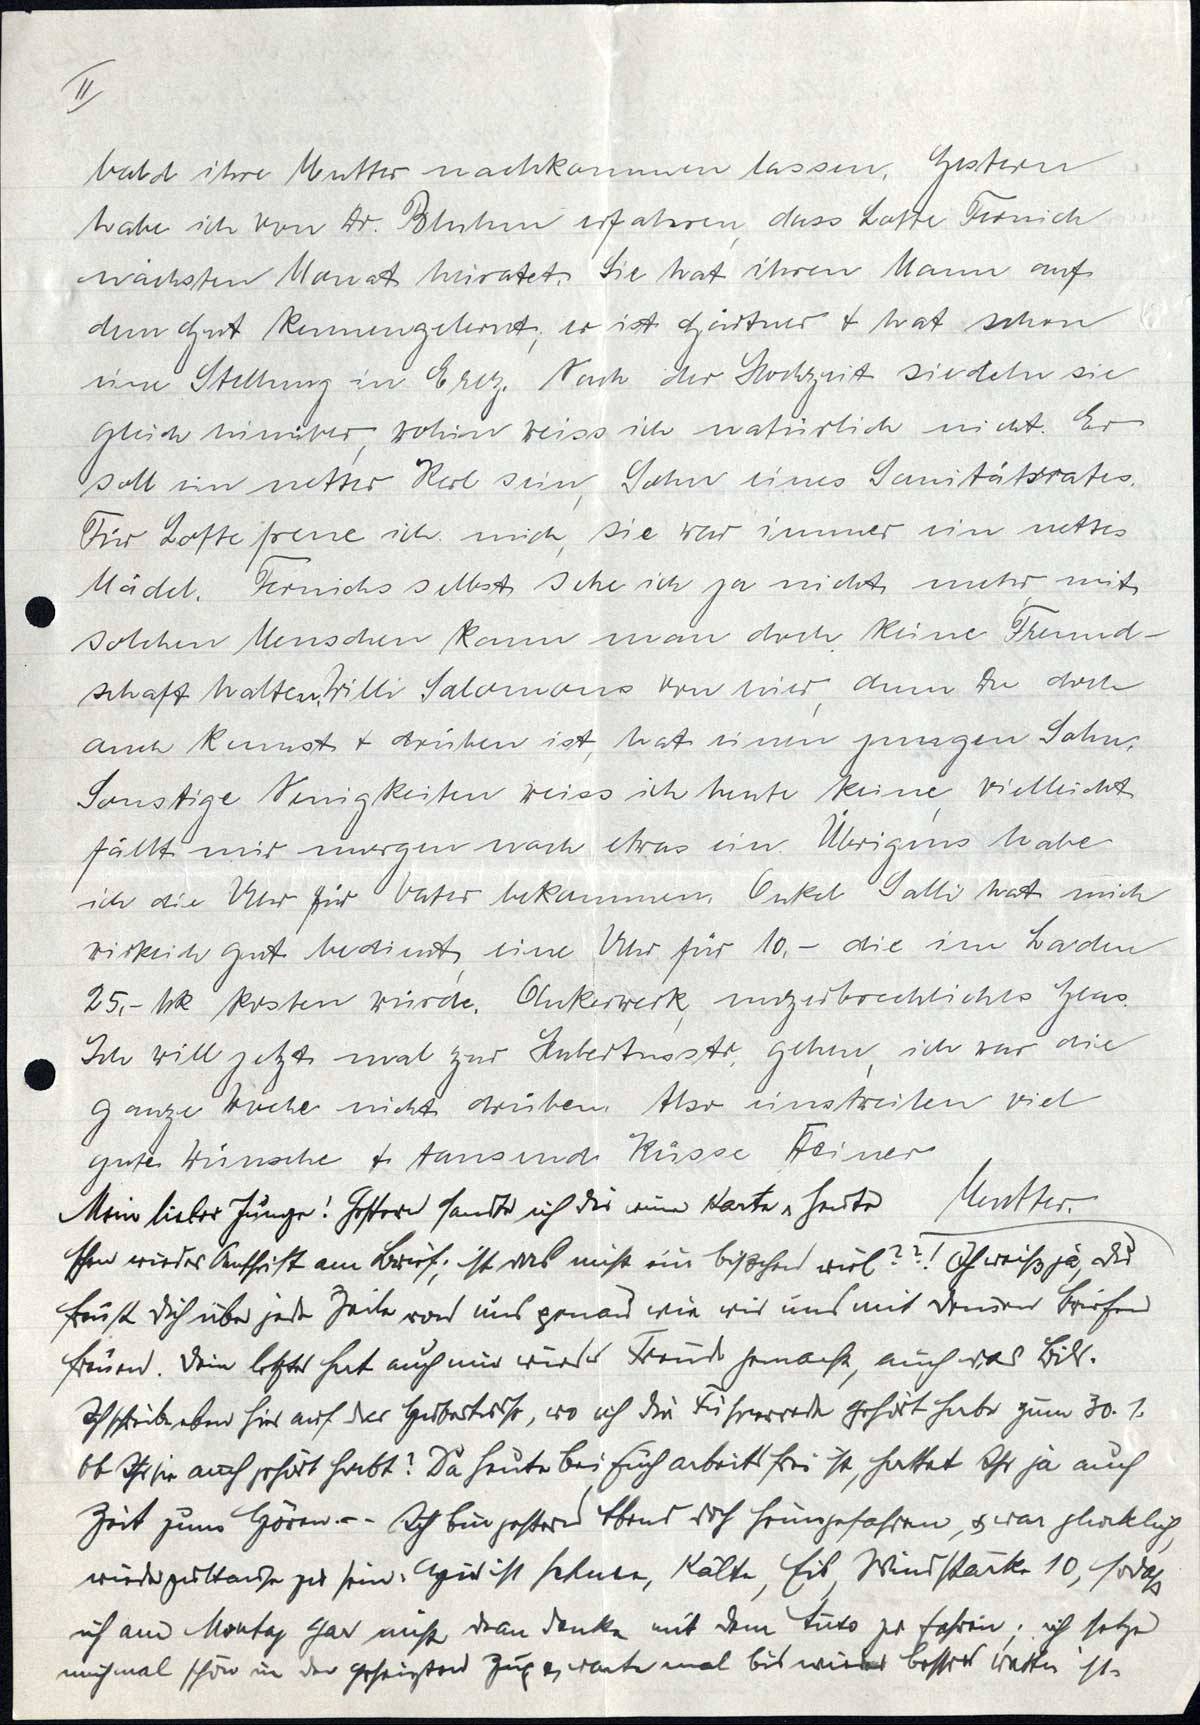 II
bald ihre Mutter nachkommen lassen. Gestern
habe ich von Dr. Bluhm erfahren, dass Lotte Fernich
nächsten Monat heiratet. Sie hat ihren Mann auf
dem Gut kennengelernt, er ist Gärtner & hat schon
eine Stellung in Erez. Nach der Hochzeit siedeln sie
gleich hinüber, wohin weiss ich natürlich nicht. Er
soll ein netter Kerl sein, Sohn eines Sanitätsrates.
Für Lotte freue ich mich, sie war immer ein nettes
Mädel. Fernichs selbst sehe ich ja nicht mehr, mit
solchen Menschen kann man doch keine Freund-
schaft halten. Willi Salomons von hier, denn Du doch
auch kennst & drüben ist, hat einen jungen Sohn.
Sonstige Neuigkeiten weiss ich heute keine, vielleicht
fällt mir morgen noch etwas ein. Übrigens habe
ich die Uhr für Vater bekommen. Onkel Salli hat mich
wirklich gut bedient, eine Uhr für 10.- die im Laden
25.- Mk kosten würde. Ankerwerk, unzerbrechliches Glas.
Ich will jetzt mal zur Hubertusstr. gehen, ich war die
ganze Woche nicht drüben. Also einstweilen viel
gute Wünsche & tausend Küsse Deiner
Mutter.
Mein lieber Junge! Gestern sandte ich dir eine Karte u. heute
schon wieder am Brief; ist das nicht ein bißchen viel??! Ich weiß ja, du
freust dich über jede Zeile von uns genau wie wir uns mit deinen Briefen
freuen. Dein letzter hat auch mir wieder Freude gemacht, auch das Bild.
Ich schreibe eben hier auf der Hubertusstr, wo ich die Führerrede gehört habe zum 30. 1.
Ob Ihr sie auch gehört habt? Da heute bei Euch arbeitsfrei ist, hattet Ihr ja auch
Zeit zum Hören. -- Ich bin gestern Abend noch heimgefahren, & war glücklich,
wieder zu Hause zu sein. Hier ist Schnee, Kälte, Eis, Windstärke 10, sodaß
ich am Montag gar nicht dran denke mit dem Auto zu fahren; ich setze
mich mal schön in den geheizten Zug & warte mal bis wieder besseres Wetter ist.